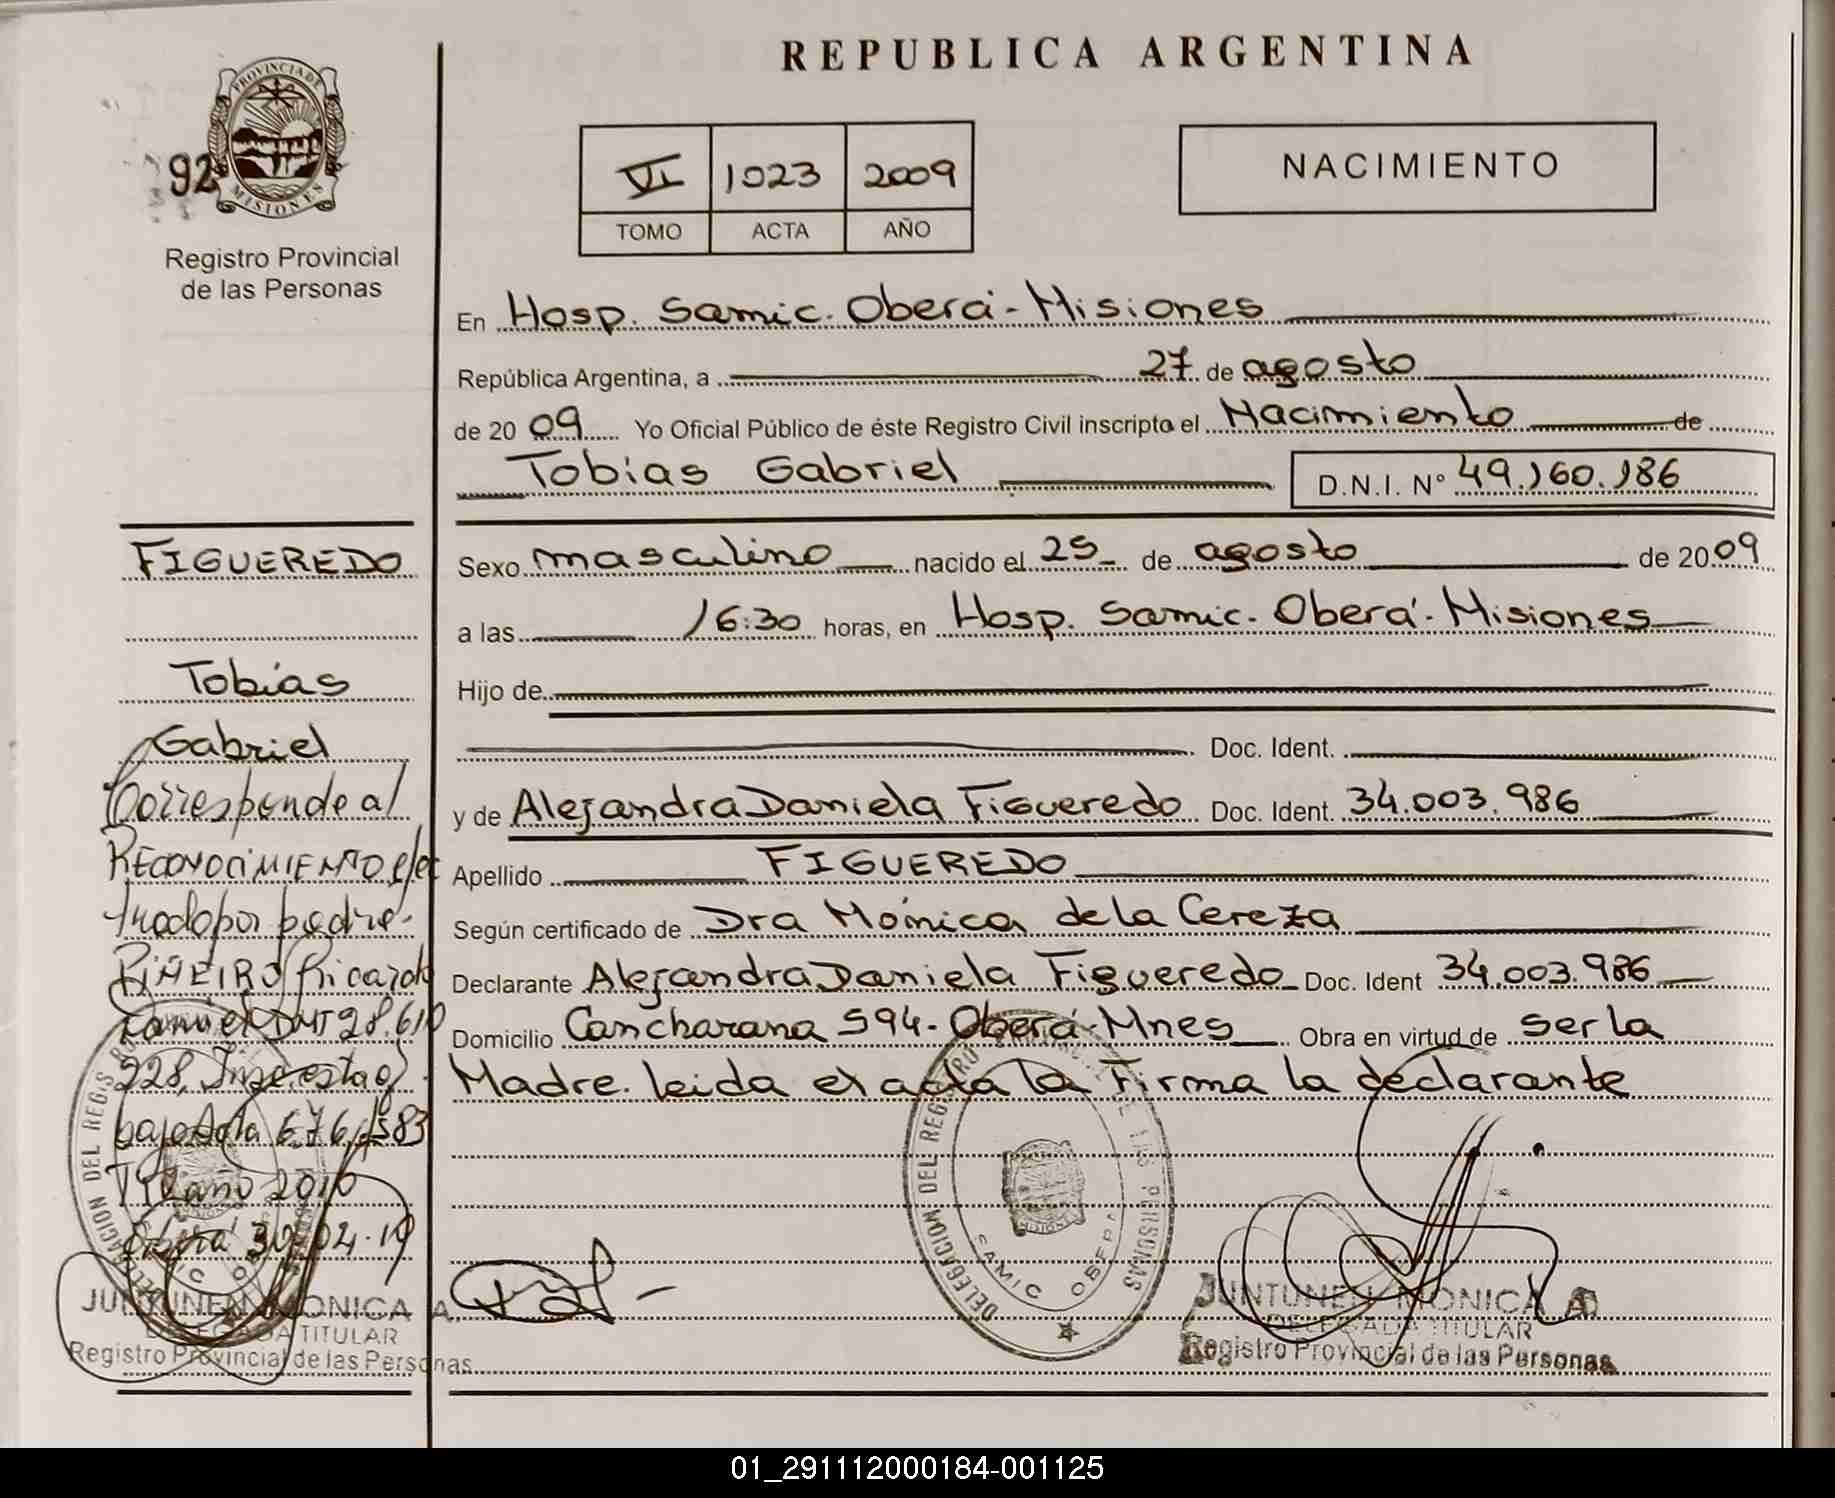 REPUBLICA ARGENTINA
PROVINCIA DE MISIONES
92
Registro Provincial
de las Personas
VI 1023 2009
TOMO ACTA AÑO
NACIMIENTO
En Hosp. Samic. Oberá - Misiones
República Argentina, a 27 de agosto
de 2009 Yo Oficial Público de éste Registro Civil inscripto el Nacimiento de
Tobias Gabriel D.N.I. N° 49.160.186
Sexo masculino nacido el 25 de agosto de 2009
a las 16:30 horas, en Hosp. Samic. Oberá. Misiones
Hijo de
Doc. Ident.
y de Alejandra Daniela Figueredo Doc. Ident. 34.003.986
Apellido FIGUEREDO
Según certificado de Dra Mónica de la Cereza
Declarante Alejandra Daniela Figueredo Doc. Ident 34.003.986
Domicilio Cancharana 594. Oberá. Mnes Obra en virtud de ser la
Madre. leida el acta la Firma la declarante
FIGUEREDO
Tobias
Gabriel
Corresponde al
RECONOCIMIENTO efec
tuado por padre.
PIÑEIRO Ricardo
DNI 28.610
228,
bajo Acta 676
año 2010
Oberá 30-04-10
DELEGACION DEL REGISTRO PROVINCIAL DE LAS PERSONAS
SAMIC OBERA
JUNTUNEN MONICA A.
DELEGADA TITULAR
Registro Provincial de las Personas
JUNTUNEN MONICA A.
DELEGADA TITULAR
Registro Provincial de las Personas
01_291112000184-001125